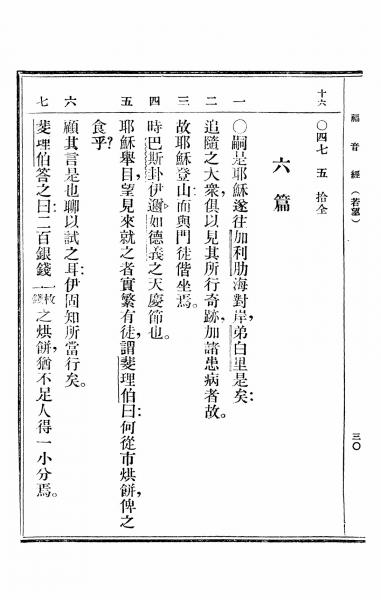 福音經（若望）
三〇
十六 〇四七 五 拾全
六篇
一 〇嗣是耶穌遂往加利肋海對岸，弟白里是矣：
二 追隨之大衆，俱以見其所行奇跡，加諸患病者故。
三 故耶穌登山，而與門徒偕坐焉。
四 時巴斯卦伊邇，如德義之天慶節也。
五 耶穌舉目，望見來就之者實繁有徒，謂斐理伯曰：何從市烘餅，俾之
食乎？
六 顧其言是也，聊以試之耳，伊固知所當行矣。
七 斐理伯答之曰：二百銀錢一枚錢之烘餅，猶不足人得一小分焉。